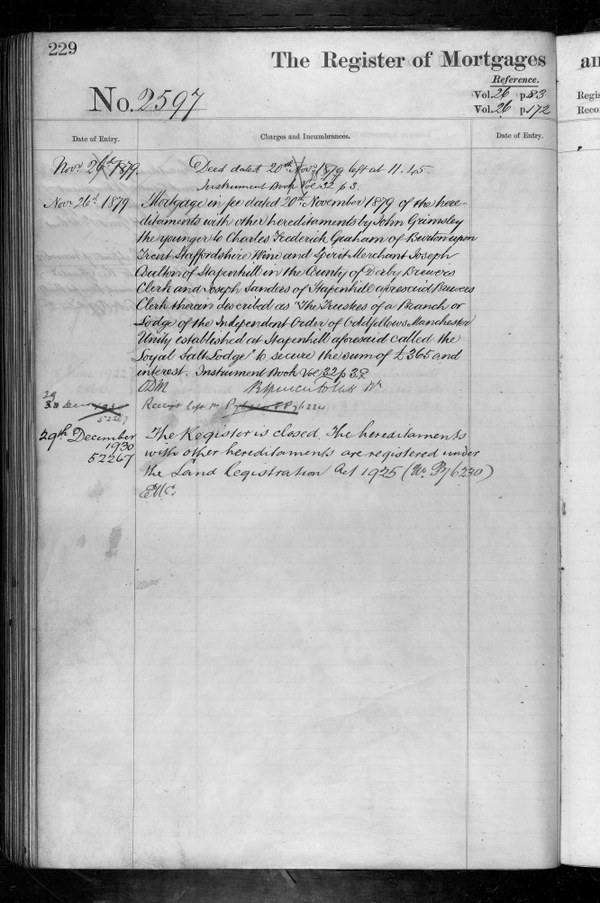 229
The Register of Mortgages
Reference.
Vol. 26 p. 83
Vol. 26 p. 172
No. 2597
Date of Entry.
Charges and Incumbrances.
Date of Entry.
Novr. 26th 1879.
Deed dated 20th Novr. 1879 left at 11.45.
Instrument Book Vol 32 p 3.
Nov 26th 1879
Mortgage in fee dated 20th November 1879 of the here-
ditaments with other hereditaments by John Grimsley
the younger to Charles Frederick Graham of Burton upon
Trent Staffordshire Wine and Spirit Merchant Joseph
of Stapenhill in the County of Derby Brewers
Clerk and Joseph Sanders of Stapenhill aforesaid Brewers
Clerk therein described as "The Trustees of a Branch or
Lodge of the Independent Order of Oddfellows Manchester
Unity established at Stapenhill aforesaid called the
Loyal Salts Lodge" to secure the sum of £365 and
interest. Instrument Book Vol 32 p 38
29
52267
29th December
1930
52267
The Register is closed. The hereditaments
with other hereditaments are registered under
the Land Registration Act 1925 (Un. P76230)
an
Regis
Recor